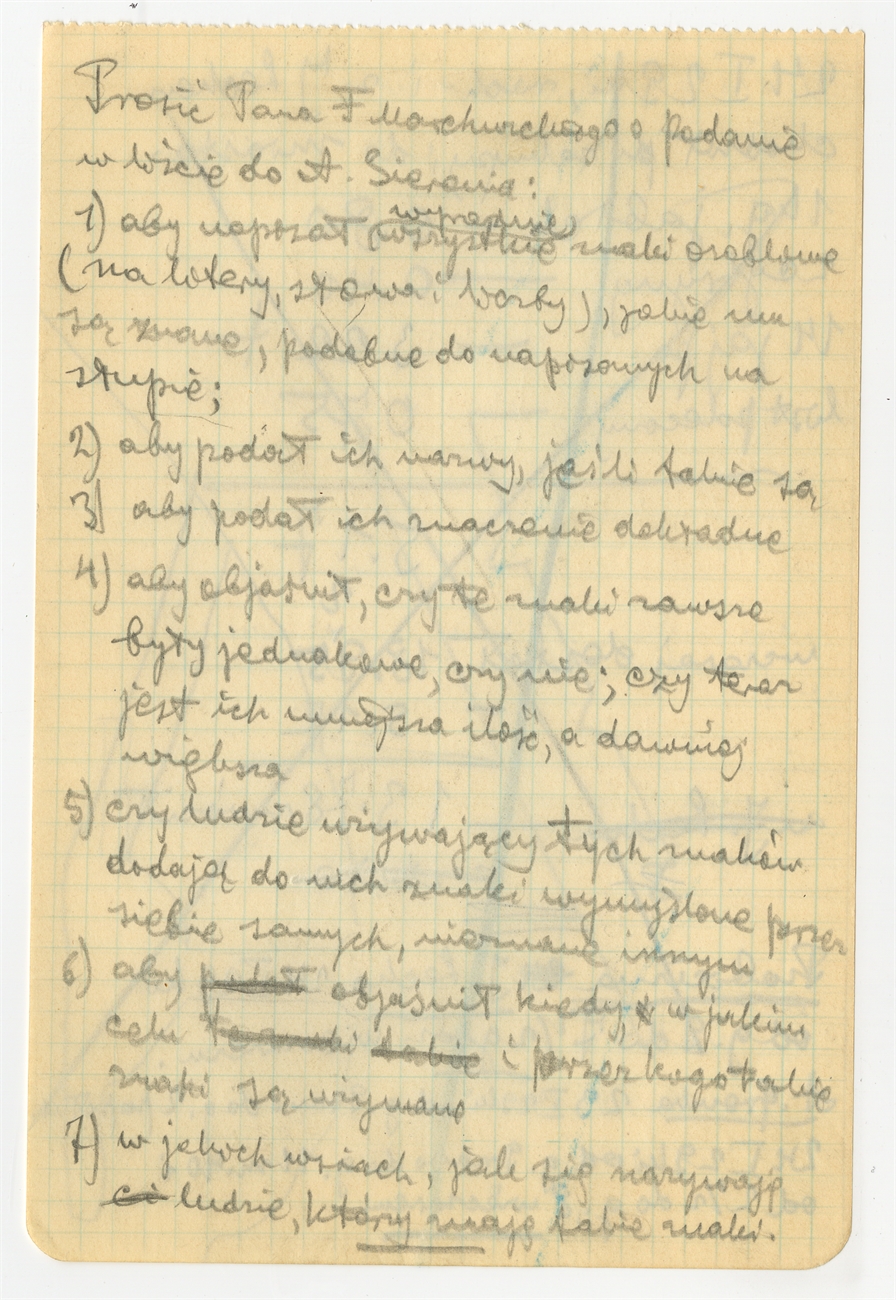 Prosić Pana F Marchwickiego o podanie
w liście do A. Sierania:
1) aby napisał (wyraźnie) wszystkie znaki osobowe
(na litery, słowa i liczby), jakie mu
są znane, podobne do napisanych na
słupie;
2) aby podał ich nazwy, jeśli takie są
3) aby podał ich znaczenie dokładne
4) aby objaśnił, czy te znaki zawsze
były jednakowe, czy nie; czy teraz
jest ich mniejsza ilość, a dawniej
większa
5) czy ludzie używający tych znaków
dodają do nich znaki wymyślone przez
siebie samych, nieznane innym
6) aby podał objaśnił kiedy, w jakim
celu te znaki takie i przez kogo takie
znaki są używane
7) w jakich wsiach, jak się nazywają
ci ludzie, którzy mają takie znaki.